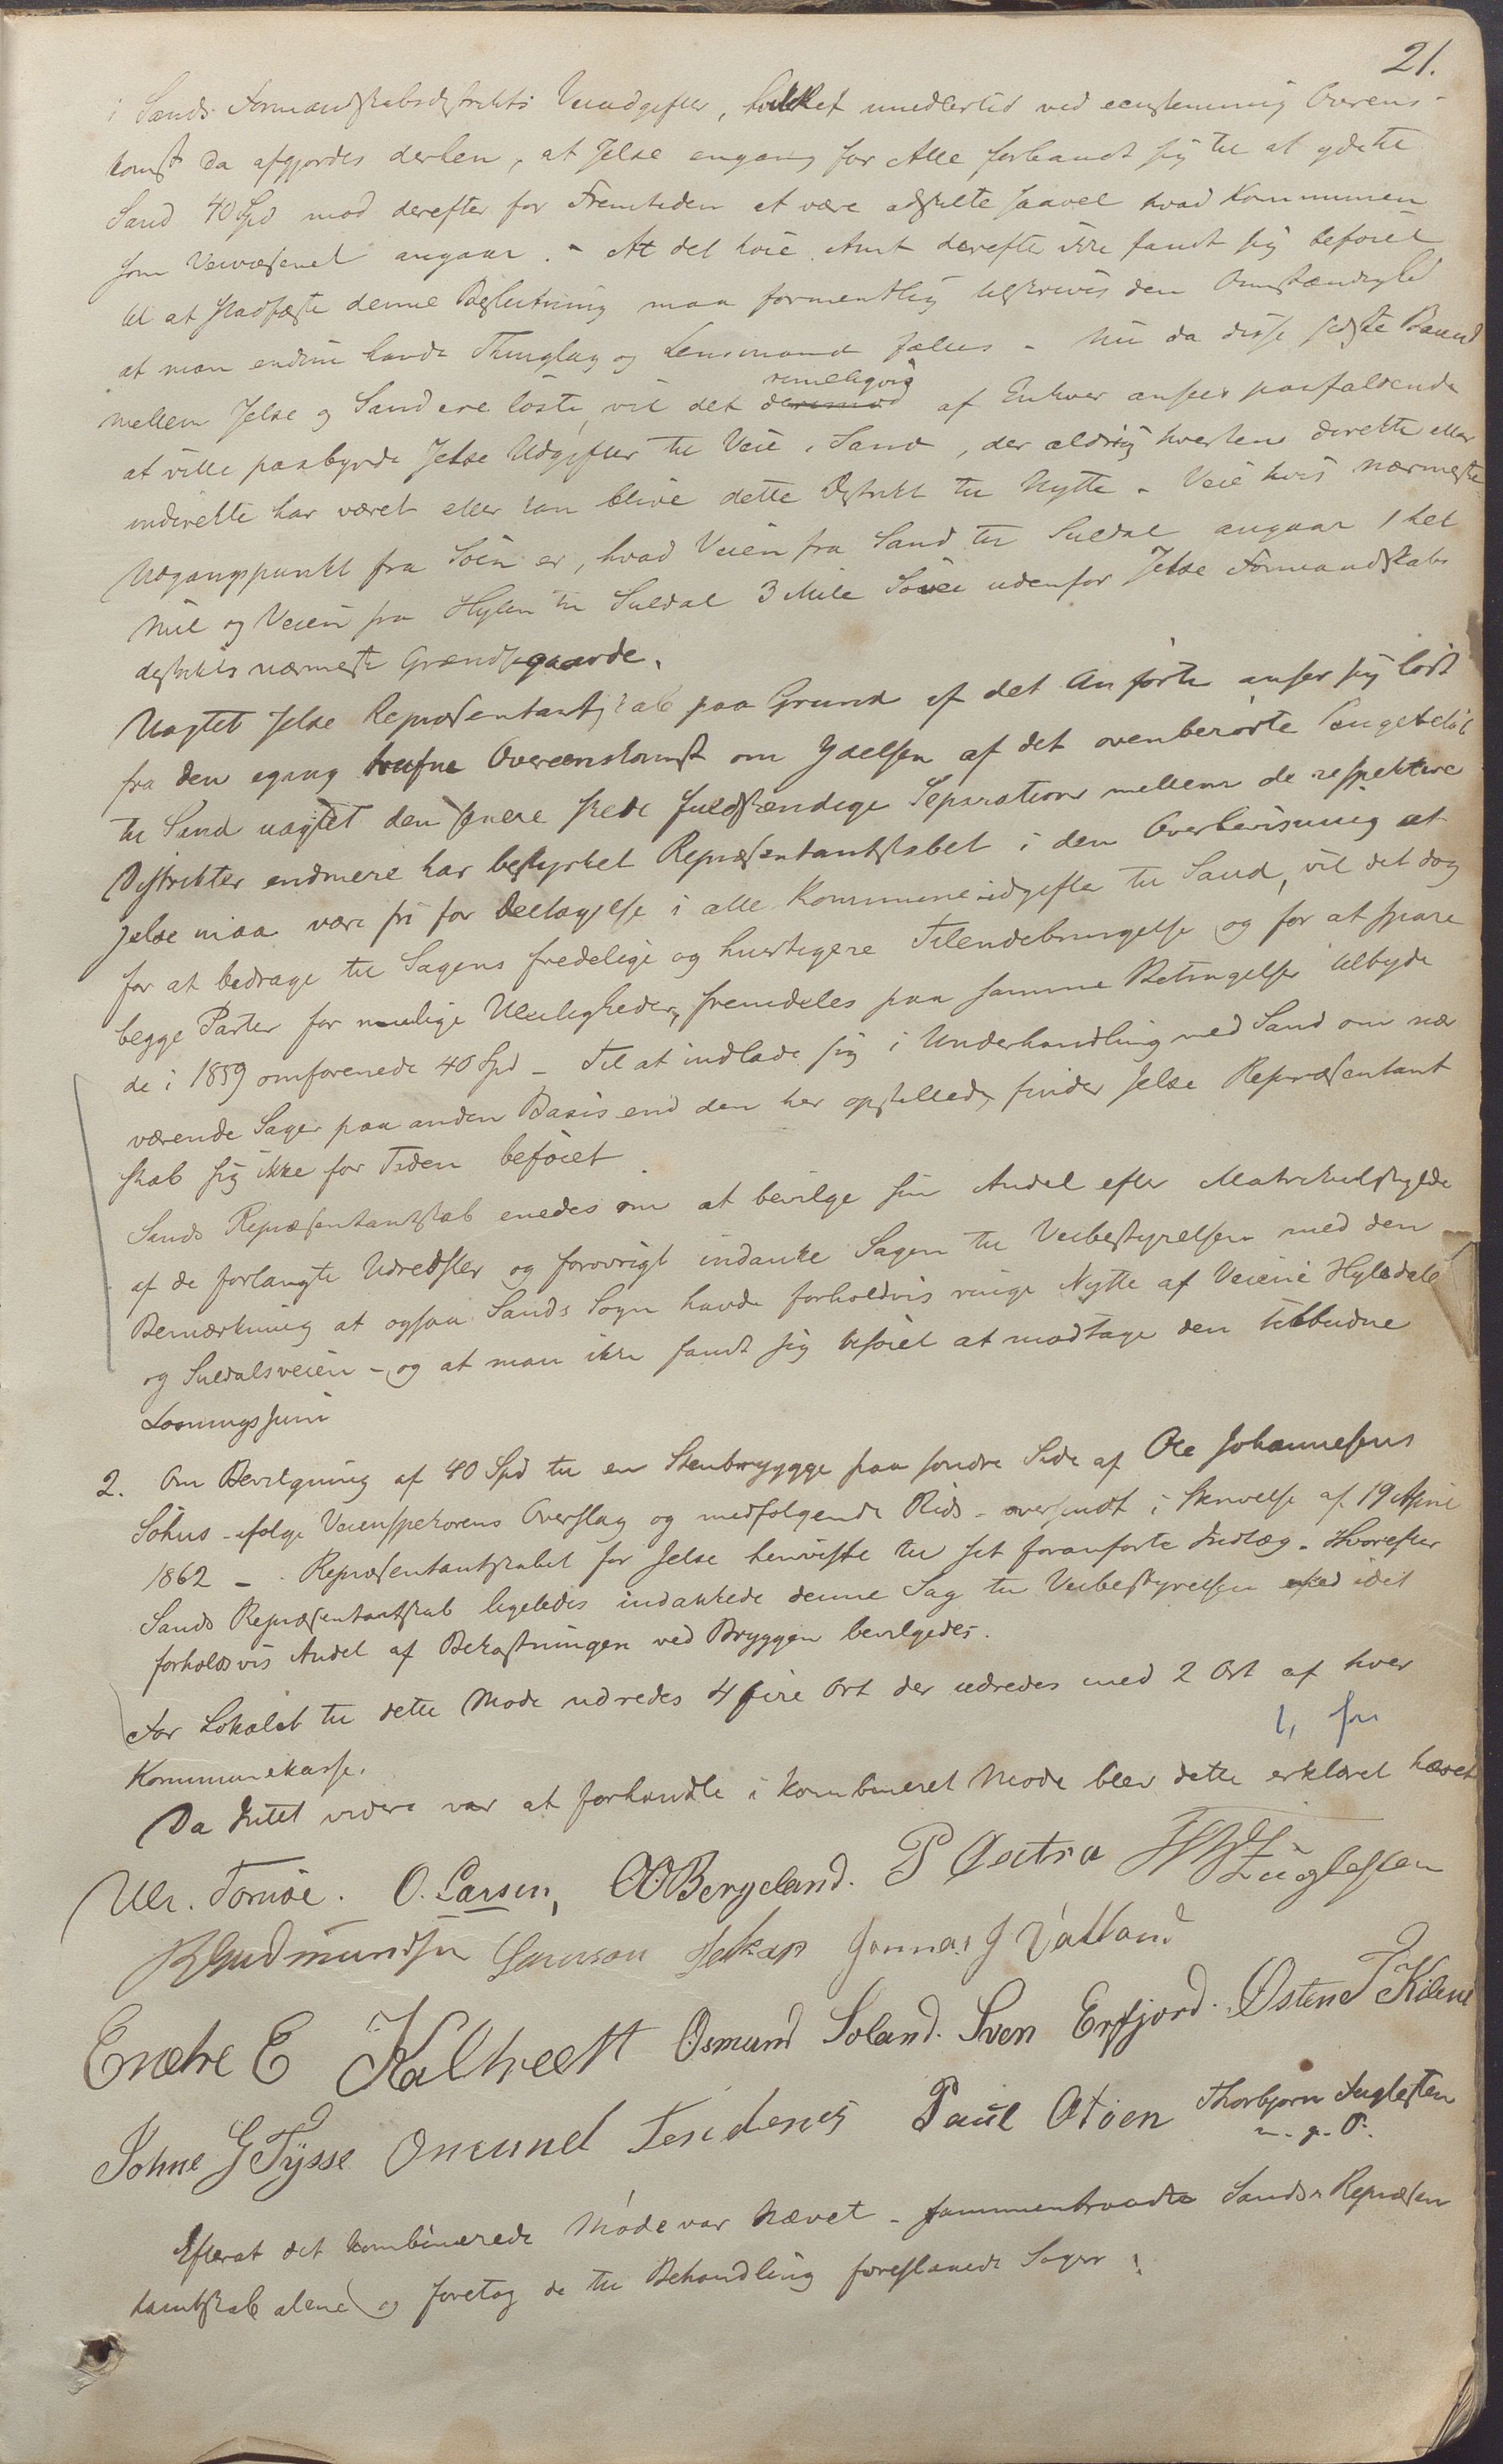 21.
i Sands Formandskabsdistrikts Veiudgifter, hvilket imidlertid ved eenstemmig Overens-
komst da afgjordes derhen, at Jelse engang for Alle forbandt sig til at yde til
Sand 40 Spd mod derefter for Fremtiden at være adskilte saavel hvad Kommunen
som Veivæsenet angaar. - At det høie Amt derefter ikke fandt sig beføiet
til at stadfæste denne Beslutning maa formentlig tilskrives den Omstændighed
at man endnu havde Thinglag og Lensmand fælles - Nu da disse sidste Baand
rimeligvis
mellem Jelse og Sand ere løste, vil det derimod af Enhver ansees paafaldende
at ville paabyrde Jelse Udgifter til Veie i Sand, der aldrig hverken direkte eller
indirekte har været eller kan blive dette Distrikt til Nytte - Veie hvis nærmeste
Udgangspunkt fra Søen er, hvad Veien fra Sand til Suldal angaar 1 hel
Mil og Veien fra Hylen til Suldal 3 Mile Søvei udenfor Jelse Formandskabs
distrikts nærmeste Grændsegaarde.
Uagtet Jelse Repræsentantskab paa Grund af det Anførte anser sig løst
fra den engang trufne Overeenskomst om Ydelsen af det ovenberørte Pengebeløb
til Sand uagtet den senere skede fuldstændige Separation mellem de respektive
Distrikter endmere har bestyrket Repræsentantskabet i den Overbevisning at
Jelse maa være fri for Deeltagelse i alle Kommuneudgifter til Sand, vil det dog
for at bidrage til Sagens fredelige og hurtigere Tilendebringelse og for at spare
begge Parter for mulige Uleiligheder, fremdeles paa samme Betingelser tilbyde
de i 1859 omforenede 40 Spd - Til at indlade sig i Underhandling med Sand om nær
værende Sager paa anden Basis end den her opstillede, finder Jelse Repræsentant
skab sig ikke for Tiden beføiet
Sands Repræsentantskab enedes om at bevilge sin Andel efter Matrikulskylden
af de forlangte Udredsler og forøvrigt indanke Sagen til Veibestyrelsen med den
Bemærkning at ogsaa Sands Sogn havde forholdvis ringe Nytte af Veiene Hylsdals
og Suldalsveien - og at man ikke fandt sig beføiet at modtage den tilbudne
Løsningssum
2. Om Bevilgning af 40 Spd til en Stenbrygge paa søndre Side af Ole Johannesens
Søhus - ifølge Veiinspektørens Overslag og medfølgende Rids - oversendt i Skrivelse af 19 April
1862 - . Repræsentantskabet for Jelse henviste til sit foranførte Indlæg. Hvorefter
Sands Repræsentantskab ligeledes indankede denne Sag til Veibestyrelsen idet
forholdsvis Andel af Bekostningen ved Bryggen bevilgedes.
For Lokalet til dette Møde udredes 4 fire Ort der udredes med 2 Ort af hver
Kommunekasse.
Da Intet videre var at forhandle i kombineret Møde blev dette erklæret hævet
Ulr. Tornøe. O. Larsen, Bergeland. P
Gudmundsen Jonnas J Vatland
Endre E Osmund Soland. Sven Erfjord. Østen T Kilene
Johne G Tysse Onund Paul Thorbjørn Fuglesten
m. p. P.
Efterat det kombinerede Møde var hævet - sammentraadte Sands Repræsen
tantskab alene og foretog de til Behandling foreslaaede Sager: